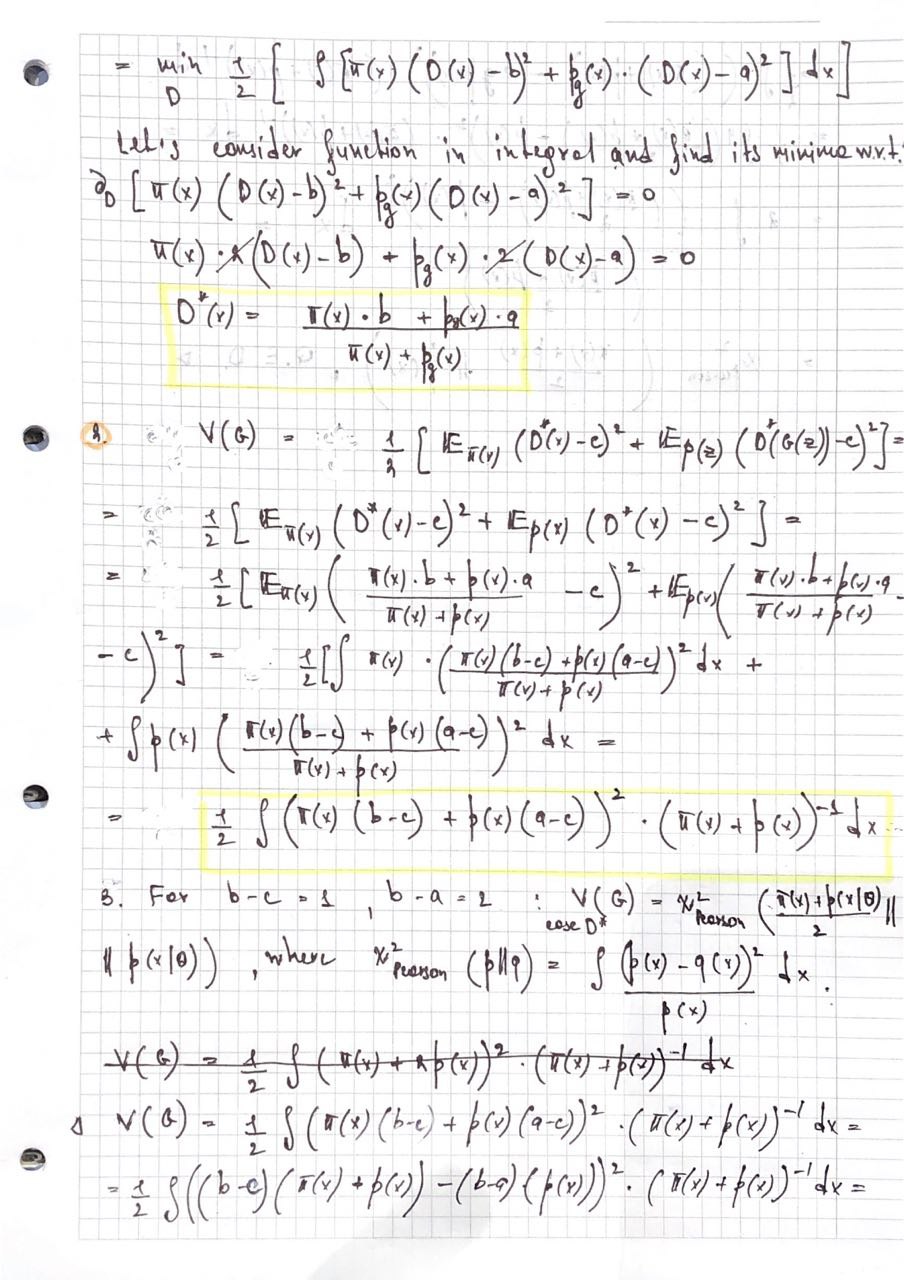 = min_D 1/2 [ ∫ [π(x) (D(x) - b)² + p_g(x) · (D(x) - a)² ] dx ]
Let's consider function in integral and find its minima w.r.t.
∂_D [ π(x) (D(x) - b)² + p_g(x) (D(x) - a)² ] = 0
π(x) · 2 (D(x) - b) + p_g(x) · 2 (D(x) - a) = 0
D*(x) = (π(x) · b + p_g(x) · a) / (π(x) + p_g(x))
2. V(G) = 1/2 [ 𝔼_π(x) (D*(x) - c)² + 𝔼_p(z) (D*(G(z)) - c)² ] =
= 1/2 [ 𝔼_π(x) (D*(x) - c)² + 𝔼_p(x) (D*(x) - c)² ] =
= 1/2 [ 𝔼_π(x) ( (π(x) · b + p(x) · a) / (π(x) + p(x)) - c )² + 𝔼_p(x) ( (π(x) · b + p(x) · a) / (π(x) + p(x)) -
- c )² ] = 1/2 [ ∫ π(x) · ( (π(x) (b-c) + p(x) (a-c)) / (π(x) + p(x)) )² dx +
+ ∫ p(x) ( (π(x) (b-c) + p(x) (a-c)) / (π(x) + p(x)) )² dx =
= 1/2 ∫ (π(x) (b-c) + p(x) (a-c))² · (π(x) + p(x))⁻¹ dx
3. For b-c = 1, b-a = 2 : V(G) = χ²_Pearson ( (π(x) + p(x|θ)) / 2 ||
case D*
|| p(x|θ)), where χ²_Pearson (p||q) = ∫ (p(x) - q(x))² / p(x) dx.
V(G) = 1/2 ∫ (π(x) + 2p(x))² · (π(x) + p(x))⁻¹ dx
Δ V(G) = 1/2 ∫ (π(x) (b-c) + p(x) (a-c))² · (π(x) + p(x))⁻¹ dx =
= 1/2 ∫ ((b-c) (π(x) + p(x)) - (b-a) (p(x)))² · (π(x) + p(x))⁻¹ dx =